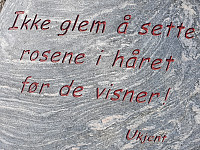 Ikke glem å sette
rosene i håret
før de visner!
Ukjent